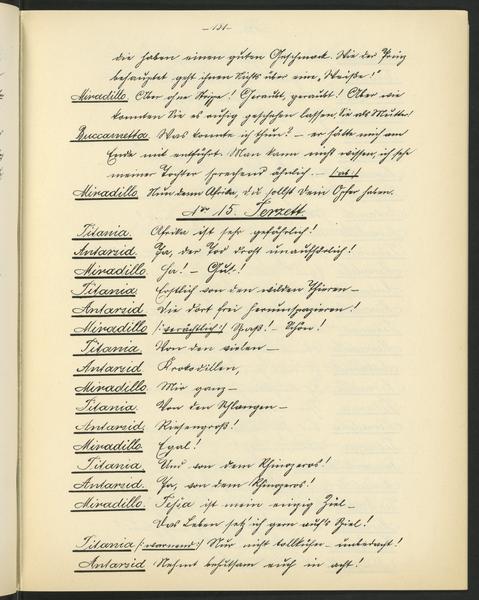 - 131 -
die haben einen guten Geschmack. Wie der Prinz
behauptet geht ihnen Nichts über ein „Weiße!"
Miradillo. Aber ohne Treppe! Geraubt, geraubt! Aber wie
konnten Sie es ruhig geschehen lassen, Sie als Mutter!
Buccametta. Was konnte ich thun? – er hätte mich am
Ende mit entführt. Man kann nicht wissen, ich sehe
meiner Tochter sprechend ähnlich. – (: ab :)
Miradillo. Nun denn Afrika, du sollst Dein Opfer haben.
Nro 15. Terzett.
Titania. Afrika ist sehr gefährlich!
Antarsid. Ja, der Tod droht unaufhörlich!
Miradillo. Ha! – Gut!
Titania. Erstlich von den wilden Thieren –
Antarsid. Die dort frei herumspazieren!
Miradillo (: verächtlich :) Spaß! – Schon!
Titania. Von den vielen –
Antarsid. Krokodillen,
Miradillo. Mir ganz –
Titania. Von den Schlangen –
Antarsid. Riesengroß!
Miradillo. Egal!
Titania. Und von dem Rhinozeros!
Antarsid. Ja, von dem Rhinozeros!
Miradillo. Tessa ist mein einzig Ziel –
Das Leben setz' ich gern auf's Spiel!
Titania (: warnend :) Nur nicht tollkühn – unbedacht!
Antarsid Nehmt behutsam euch in acht!